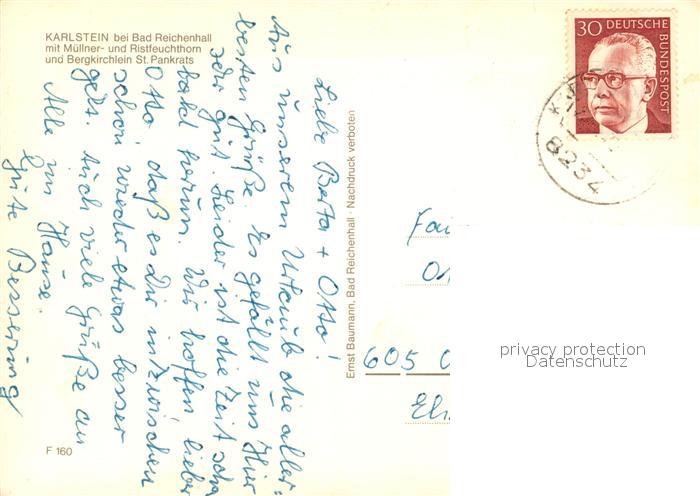 KARLSTEIN bei Bad Reichenhall
mit Müllner- und Ristfeuchthorn
und Bergkirchlein St. Pankrats
30 DEUTSCHE
BUNDESPOST
8234
Liebe Berta + Otto!
Aus unserem Urlaub die aller=
besten Grüße. Es gefällt uns hier
sehr gut. Leider ist die Zeit schon
bald herum. Wir hoffen lieber
Otto daß es Dir inzwischen
schon wieder etwas besser
geht. Auch viele Grüße an
Alle im Hause.
Gute Besserung
Ernst Baumann, Bad Reichenhall · Nachdruck verboten
605
privacy protection
Datenschutz
F 160